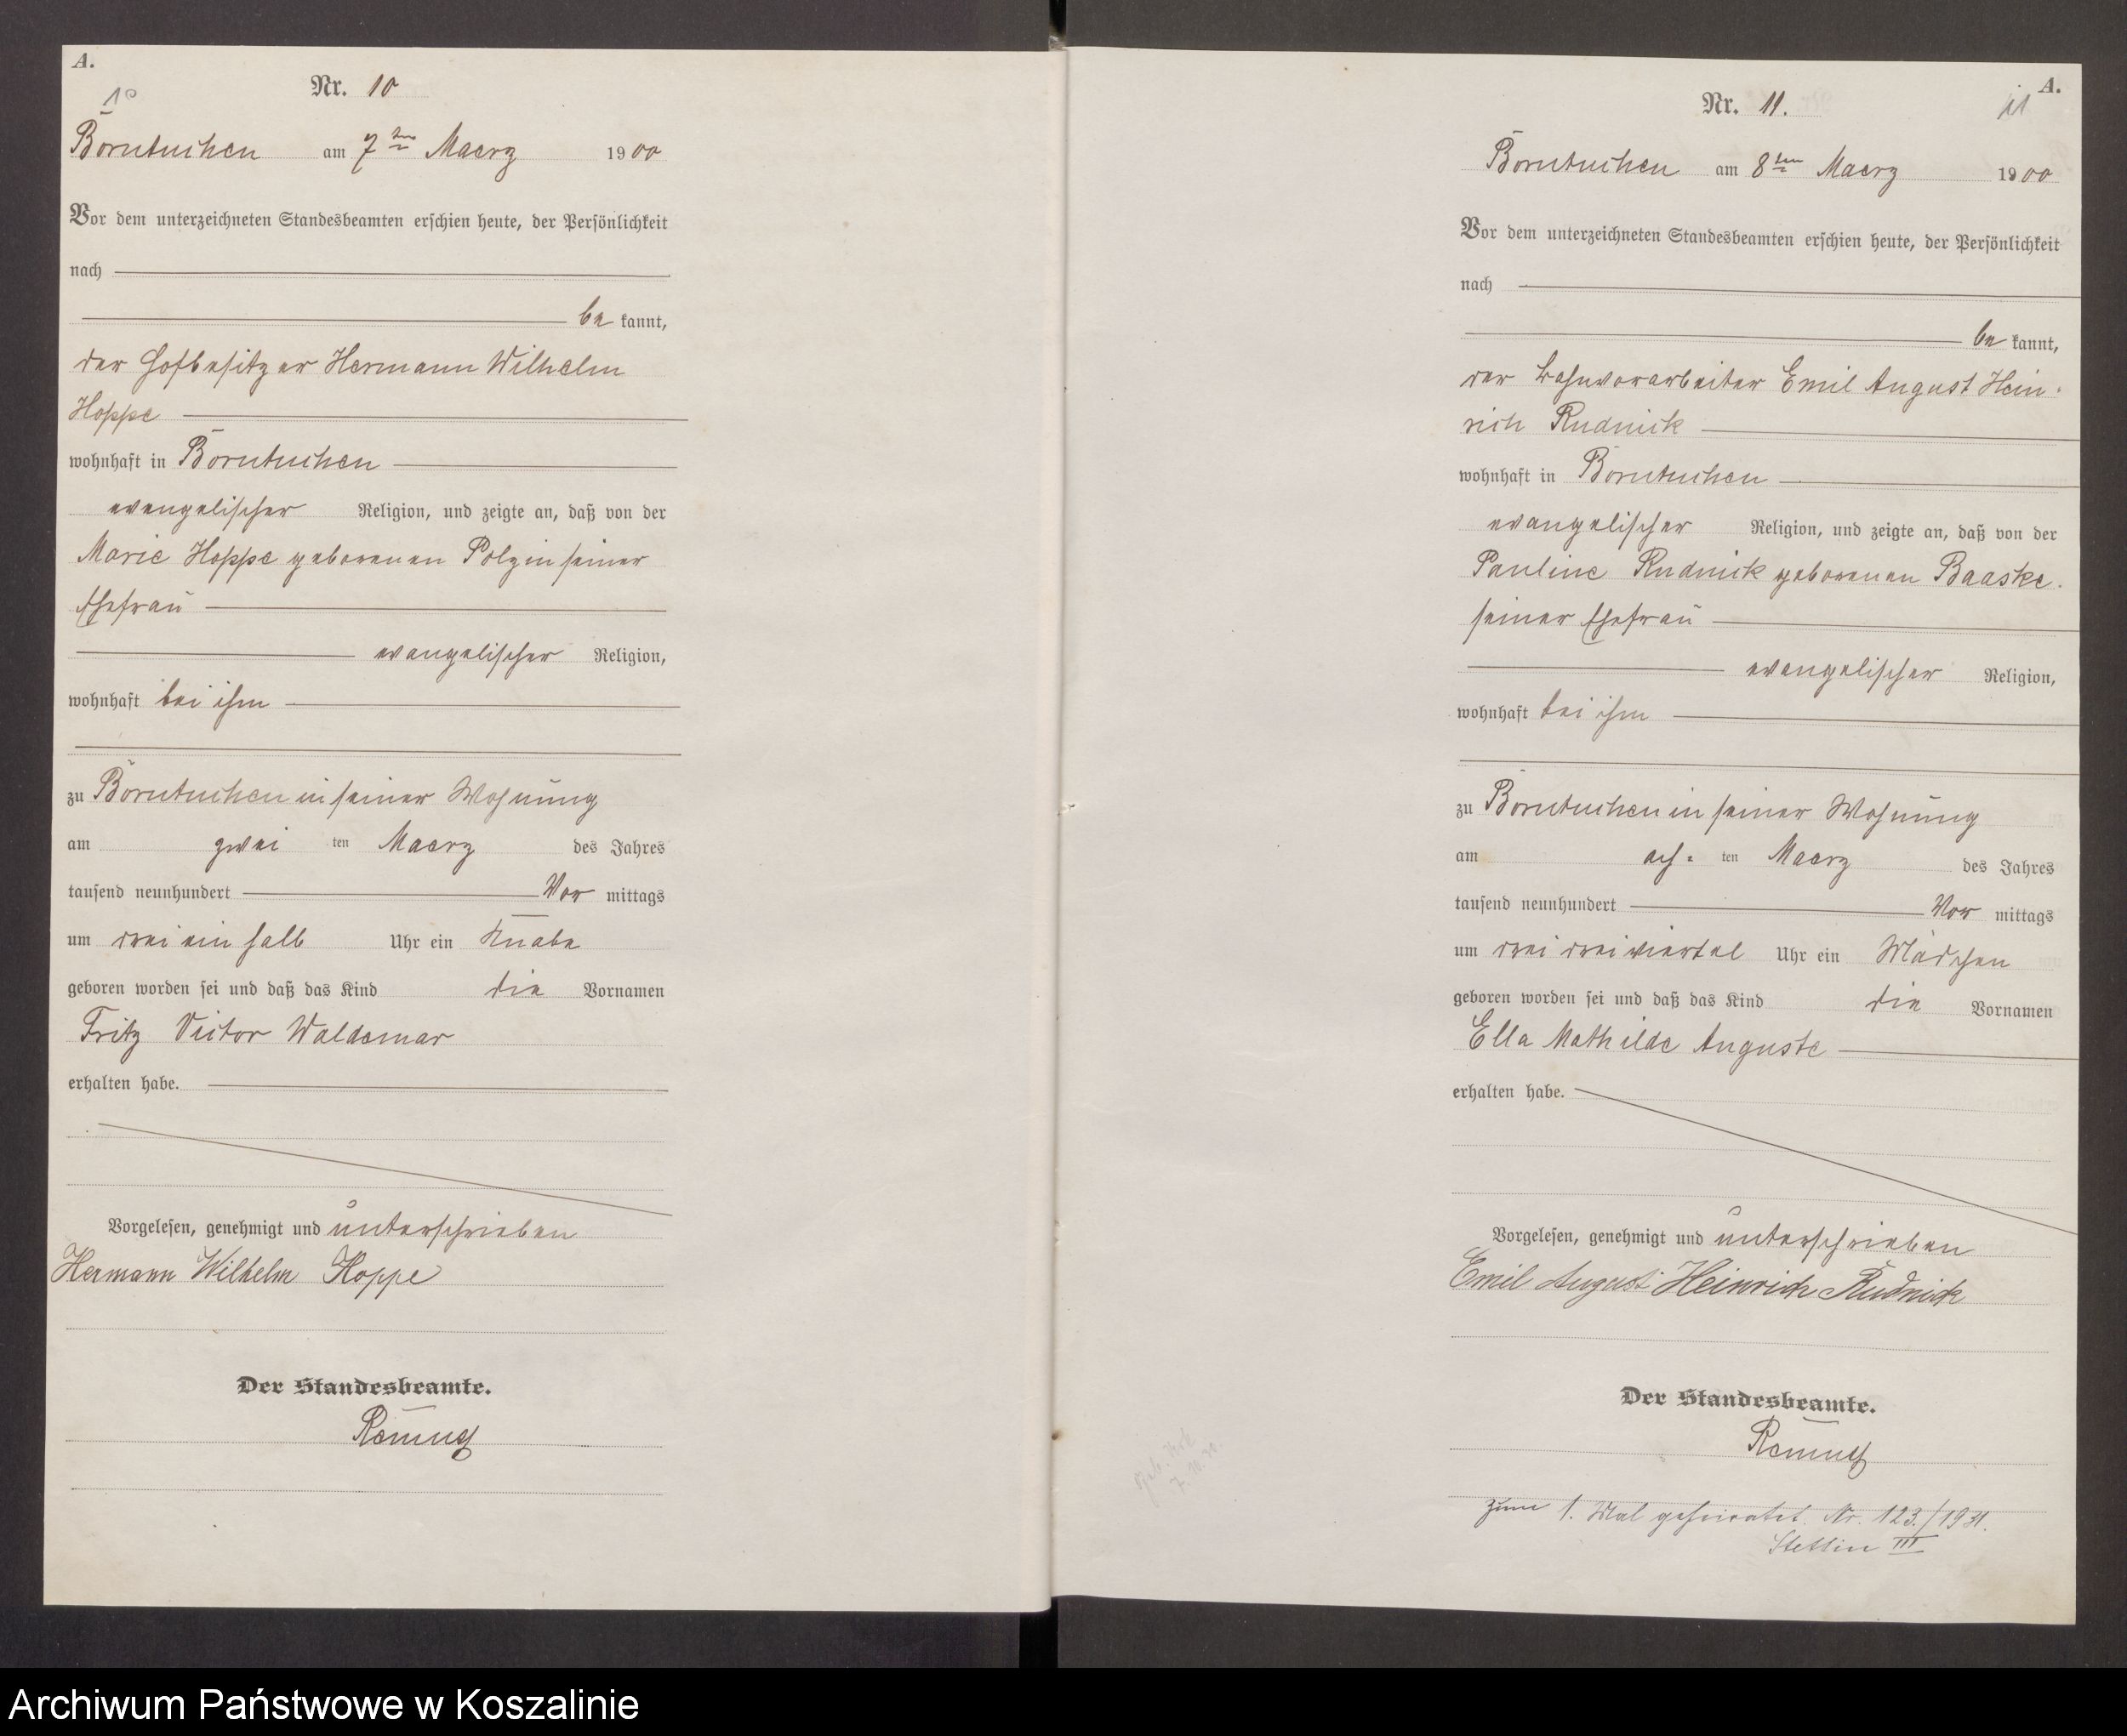 A.
10
Nr. 10
Borntuchen am 7ten Maerz 1900
Vor dem unterzeichneten Standesbeamten erschien heute, der Persönlichkeit
nach
be kannt,
der Hofbesitzer Hermann Wilhelm
Hoppe
wohnhaft in Borntuchen
evangelischer Religion, und zeigte an, daß von der
Marie Hoppe geborenen Polzin seiner
Ehefrau
evangelischer Religion,
wohnhaft bei ihm
zu Borntuchen in seiner Wohnung
am zwei ten Maerz des Jahres
tausend neunhundert Vor mittags
um drei ein halb Uhr ein Knabe
geboren worden sei und daß das Kind die Vornamen
Fritz Victor Waldemar
erhalten habe.
Vorgelesen, genehmigt und unterschrieben
Hermann Wilhelm Hoppe
Der Standesbeamte.
A.
11
Nr. 11.
Borntuchen am 8ten Maerz 1900
Vor dem unterzeichneten Standesbeamten erschien heute, der Persönlichkeit
nach
be kannt,
der Bahnvorarbeiter Emil August Hein-
rich Rudnick
wohnhaft in Borntuchen
evangelischer Religion, und zeigte an, daß von der
Pauline Rudnick geborenen Baaske.
seiner Ehefrau
evangelischer Religion,
wohnhaft bei ihm
zu Borntuchen in seiner Wohnung
am ach- ten Maerz des Jahres
tausend neunhundert Vor mittags
um drei dreiviertel Uhr ein Mädchen
geboren worden sei und daß das Kind die Vornamen
Ella Mathilde Auguste
erhalten habe.
Vorgelesen, genehmigt und unterschrieben
Emil August Heinrich Rudnick
Der Standesbeamte.
zum 1. Mal geheiratet Nr. 123./1931.
Stettin III
Archiwum Państwowe w Koszalinie